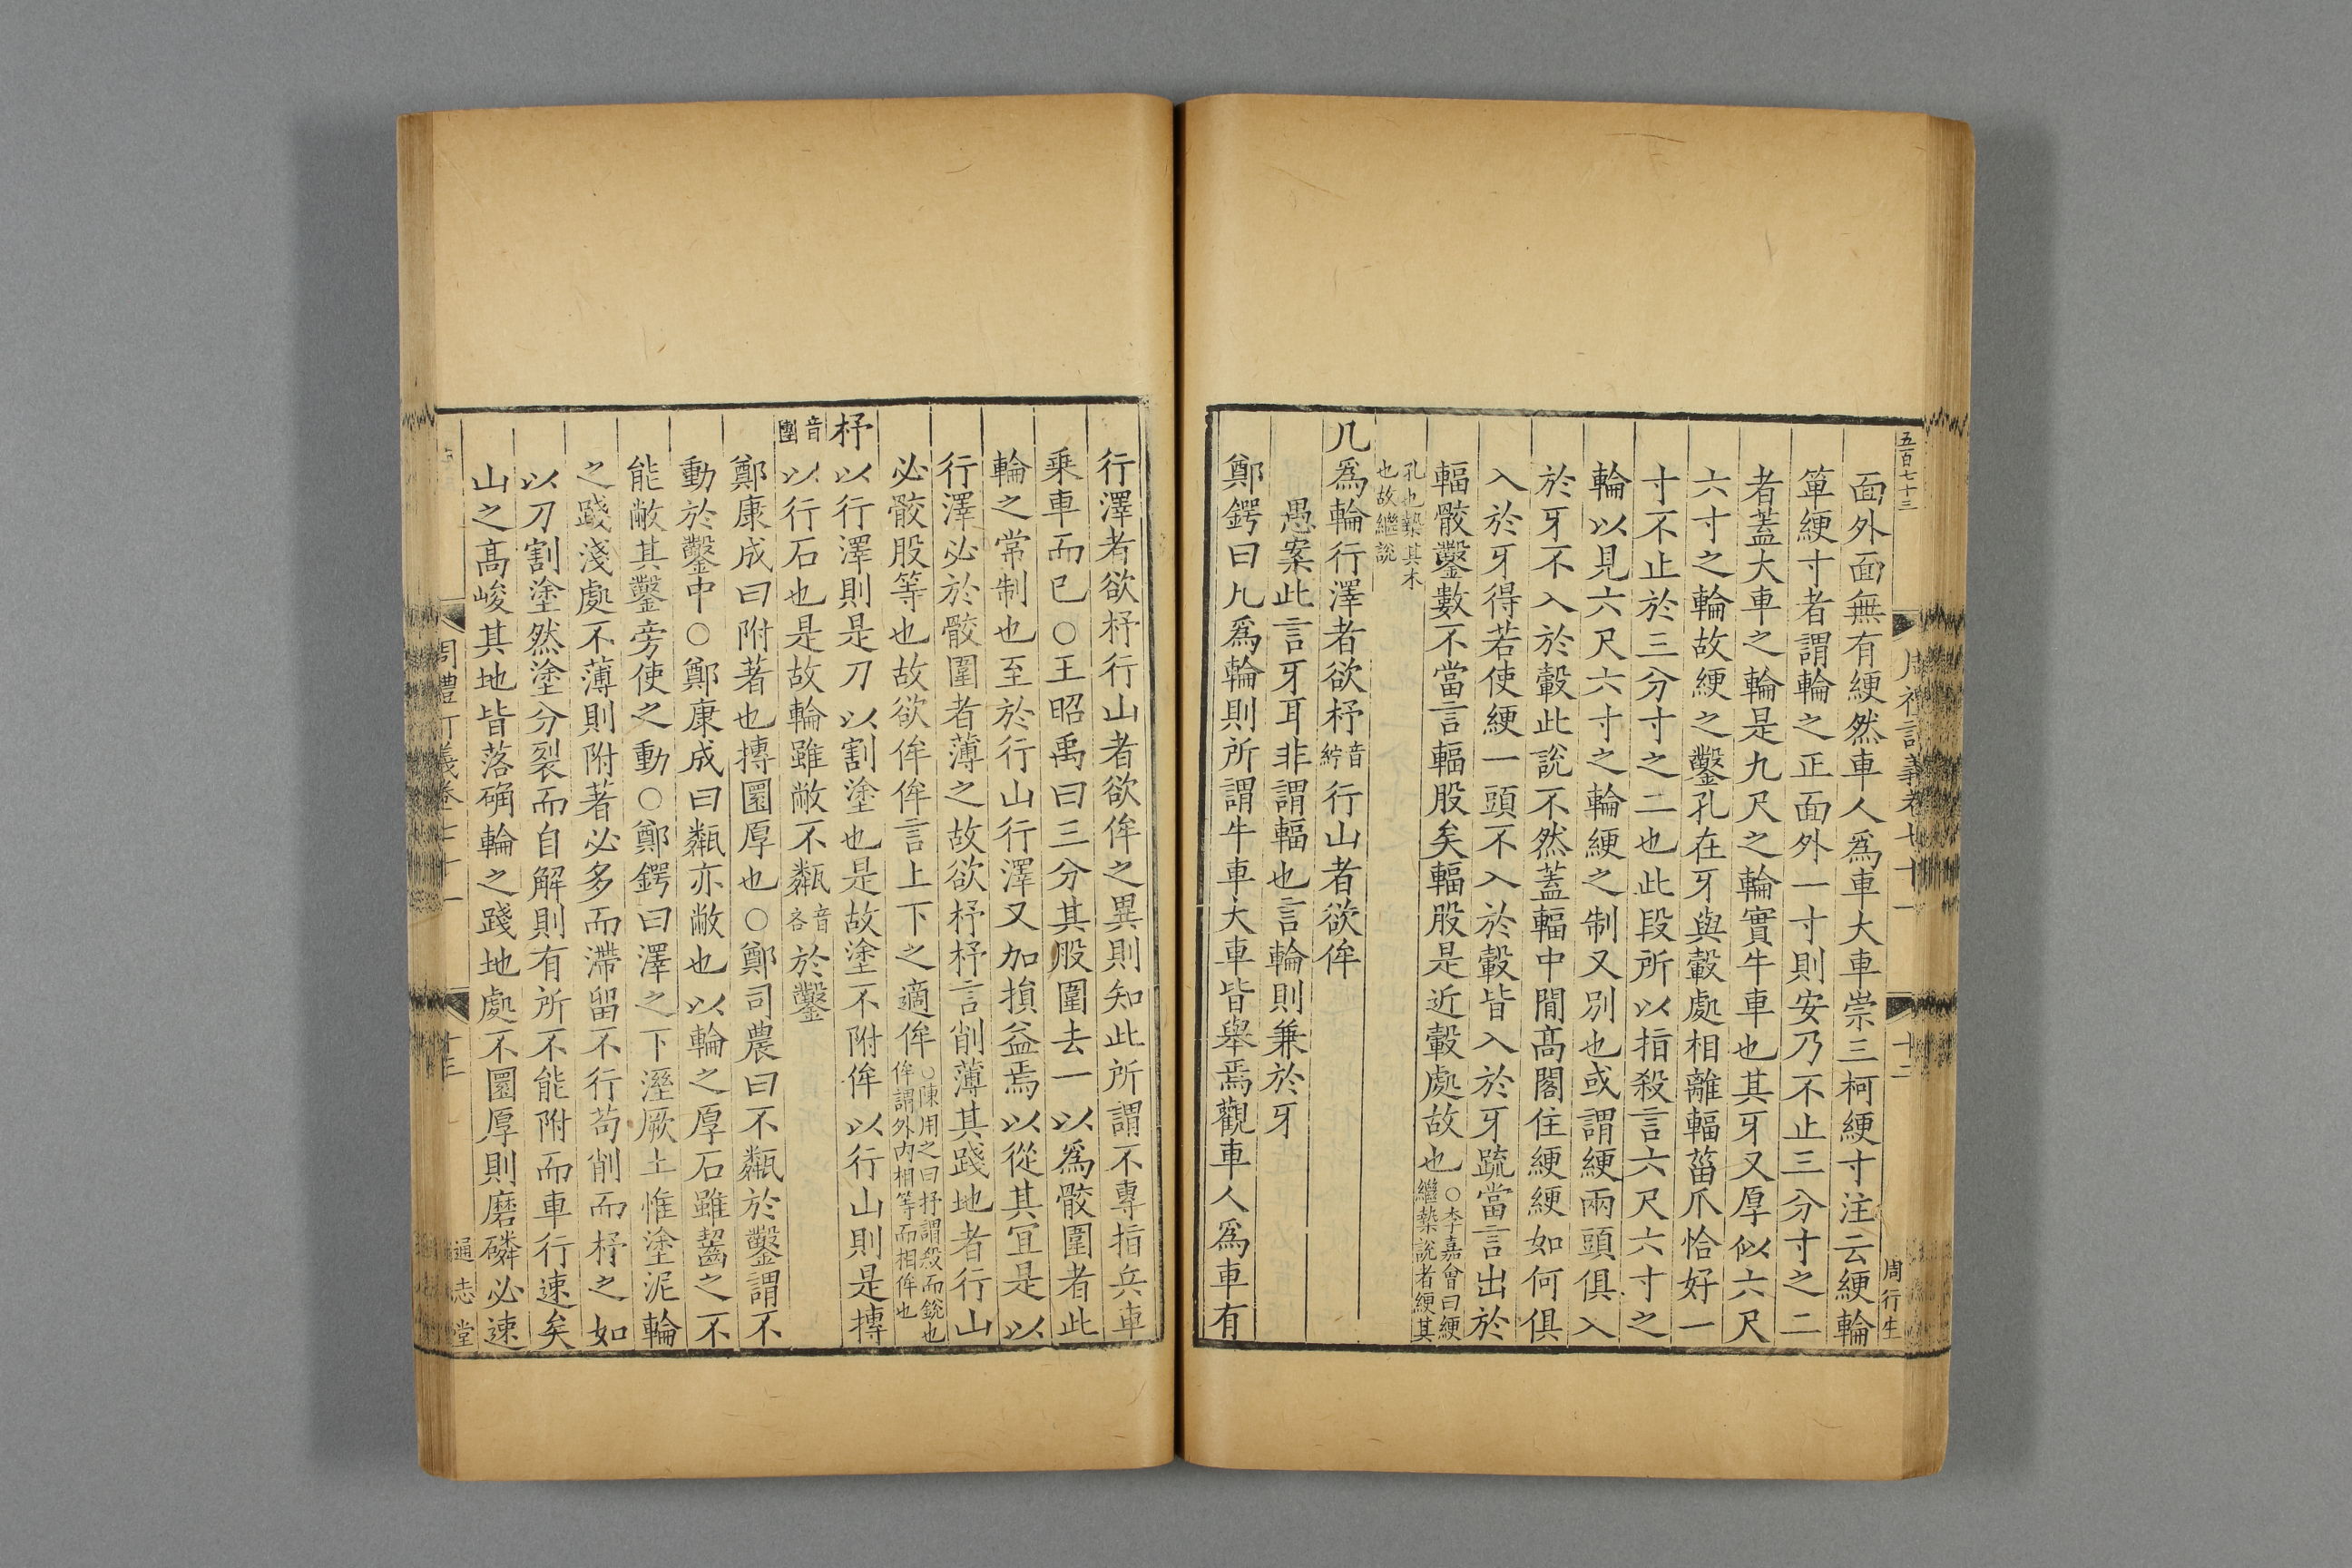 五百七十三
周禮訂義卷七十一
十二
周行生
面外面無有綆然車人爲車大車崇三柯綆寸注云綆輪
箄綆寸者謂輪之正面外一寸則安乃不止三分寸之二
者蓋大車之輪是九尺之輪實牛車也其牙又厚似六尺
六寸之輪故綆之鑿孔在牙與轂處相離輻菑爪恰好一
寸不止於三分寸之二也此段所以指殺言六尺六寸之
輪以見六尺六寸之輪綆之制又別也或謂綆兩頭俱入
於牙不入於轂此說不然蓋輻中間高閣住綆綆如何俱
入於牙得若使綆一頭不入於轂皆入於牙疏當言出於
輻骹鑿數不當言輻股矣輻股是近轂處故也○李嘉會曰綆
繼槷說者綆其
孔也槷其木
也故繼說
凡爲輪行澤者欲杼音
紵行山者欲侔
愚案此言牙耳非謂輻也言輪則兼於牙
鄭鍔曰凡爲輪則所謂牛車大車皆舉焉觀車人爲車有
行澤者欲杼行山者欲侔之異則知此所謂不專指兵車
乗車而已○王昭禹曰三分其股圍去一以爲骹圍者此
輪之常制也至於行山行澤又加損益焉以從其宜是以
行澤必於骹圍者薄之故欲杼杼言削薄其踐地者行山
必骹股等也故欲侔侔言上下之適侔○陳用之曰杼謂殺而銳也
侔謂外内相等而相侔也
杼以行澤則是刀以割塗也是故塗不附侔以行山則是摶
音
團以行石也是故輪雖敝不甐音
吝於鑿
鄭康成曰附著也摶圜厚也○鄭司農曰不甐於鑿謂不
動於鑿中○鄭康成曰甐亦敝也以輪之厚石雖齧之不
能敝其鑿旁使之動○鄭鍔曰澤之下溼厥土惟塗泥輪
之踐淺處不薄則附著必多而滯留不行苟削而杼之如
以刀割塗然塗分裂而自解則有所不能附而車行速矣
山之高峻其地皆落确輪之踐地處不圜厚則磨磷必速
周禮訂義卷七十一
十二
通志堂